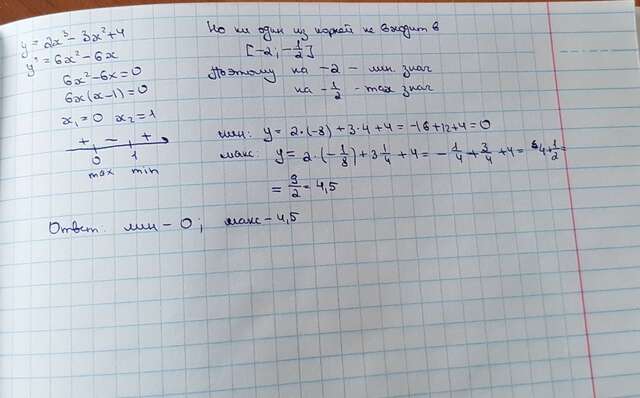 y = 2x³ - 3x² + 4
y' = 6x² - 6x
6x² - 6x = 0
6x(x-1) = 0
x₁ = 0 x₂ = 1
+ - +
0 1
max min
Но ни один из корней не входит в
[-2, -1/2]
Поэтому на -2 - мин. знач
на -1/2 - max знач
мин: y = 2·(-8) + 3·4 + 4 = -16 + 12 + 4 = 0
макс: y = 2·(-1/8) + 3 1/4 + 4 = -1/4 + 3/4 + 4 = 4 + 1/2 =
= 9/2 = 4,5
Ответ: мин - 0; макс - 4,5